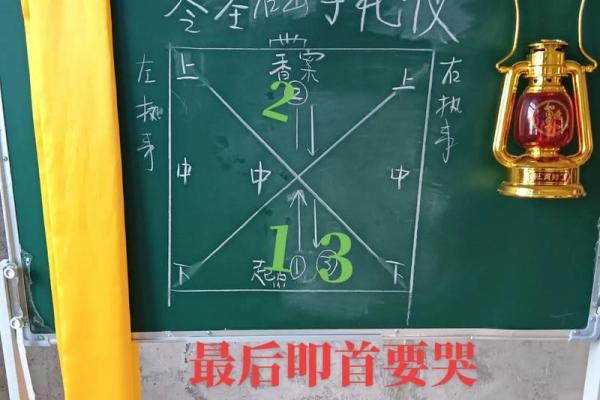 礼仪
上 香案 上
左执事
右执事
2
②
中 中 中
1 3
下 起点① ③ 下
最后叩首要哭